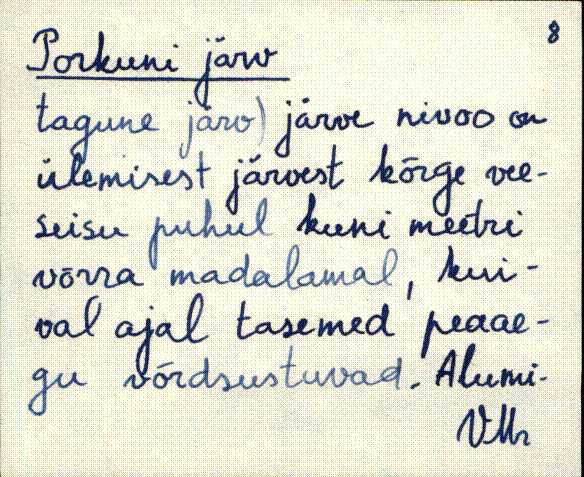 8
Porkuni järv
tagune järv) järve nivoo on
ülemisest järvest kõrge vee-
seisu puhul kuni meetri
võrra madalamal, kui-
val ajal tasemed peaae-
gu võrdsustuvad. Alumi-